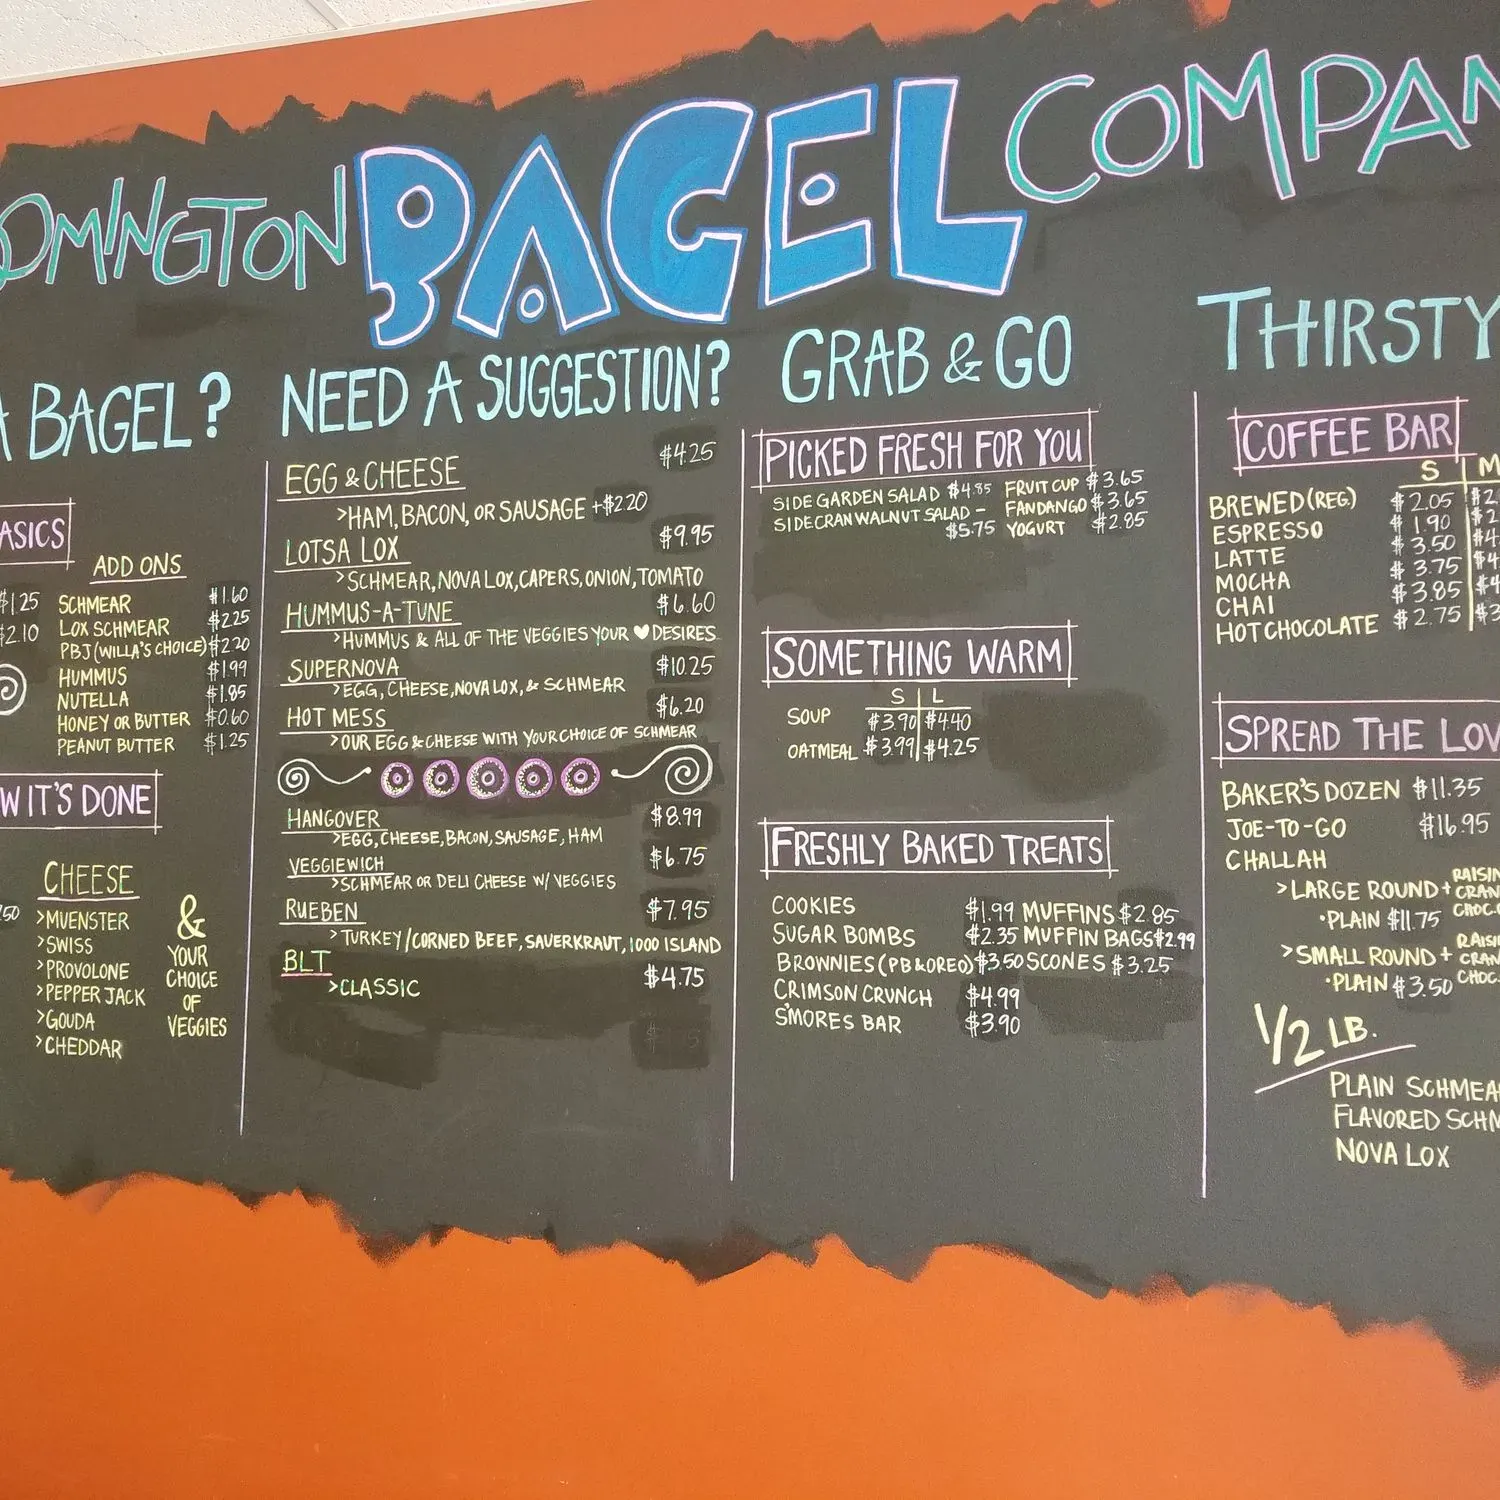 OOMINGTON BAGEL COMPAN
A BAGEL?
ASICS
ADD ONS
$1.25
$2.10
SCHMEAR $1.60
LOX SCHMEAR $2.25
PBJ (WILLA'S CHOICE) $2.20
HUMMUS $1.99
NUTELLA $1.85
HONEY OR BUTTER $0.60
PEANUT BUTTER $1.25
W IT'S DONE
CHEESE
>MUENSTER
>SWISS
>PROVOLONE
>PEPPER JACK
>GOUDA
>CHEDDAR
&
YOUR
CHOICE
OF
VEGGIES
NEED A SUGGESTION?
EGG & CHEESE $4.25
>HAM, BACON, OR SAUSAGE +$2.20
LOTSA LOX $9.95
>SCHMEAR, NOVA LOX, CAPERS, ONION, TOMATO
HUMMUS-A-TUNE $6.60
>HUMMUS & ALL OF THE VEGGIES YOUR ♥ DESIRES
SUPERNOVA $10.25
>EGG, CHEESE, NOVA LOX, & SCHMEAR
HOT MESS $6.20
>OUR EGG & CHEESE WITH YOUR CHOICE OF SCHMEAR
HANGOVER $8.99
>EGG, CHEESE, BACON, SAUSAGE, HAM
VEGGIEWICH $6.75
>SCHMEAR OR DELI CHEESE W/ VEGGIES
RUEBEN $7.95
>TURKEY/CORNED BEEF, SAUERKRAUT, 1000 ISLAND
BLT $4.75
>CLASSIC
GRAB & GO
PICKED FRESH FOR YOU
SIDE GARDEN SALAD $4.85 FRUIT CUP $3.65
SIDE CRAN WALNUT SALAD - FANDANGO $3.65
$5.75 YOGURT $2.85
SOMETHING WARM
S L
SOUP $3.90 $4.40
OATMEAL $3.99 $4.25
FRESHLY BAKED TREATS
COOKIES $1.99 MUFFINS $2.85
SUGAR BOMBS $2.35 MUFFIN BAGS $2.99
BROWNIES (PB & OREO) $3.50 SCONES $3.25
CRIMSON CRUNCH $4.99
S'MORES BAR $3.90
THIRSTY
COFFEE BAR
S M
BREWED (REG.) $2.05
ESPRESSO $1.90
LATTE $3.50
MOCHA $3.75
CHAI $3.85
HOT CHOCOLATE $2.75
SPREAD THE LOV
BAKER'S DOZEN $11.35
JOE-TO-GO $16.95
CHALLAH
>LARGE ROUND + RAISIN CRAN CHOC.
•PLAIN $11.75
>SMALL ROUND + RAISIN CRAN CHOC.
•PLAIN $3.50
1/2 LB.
PLAIN SCHMEA
FLAVORED SCHM
NOVA LOX